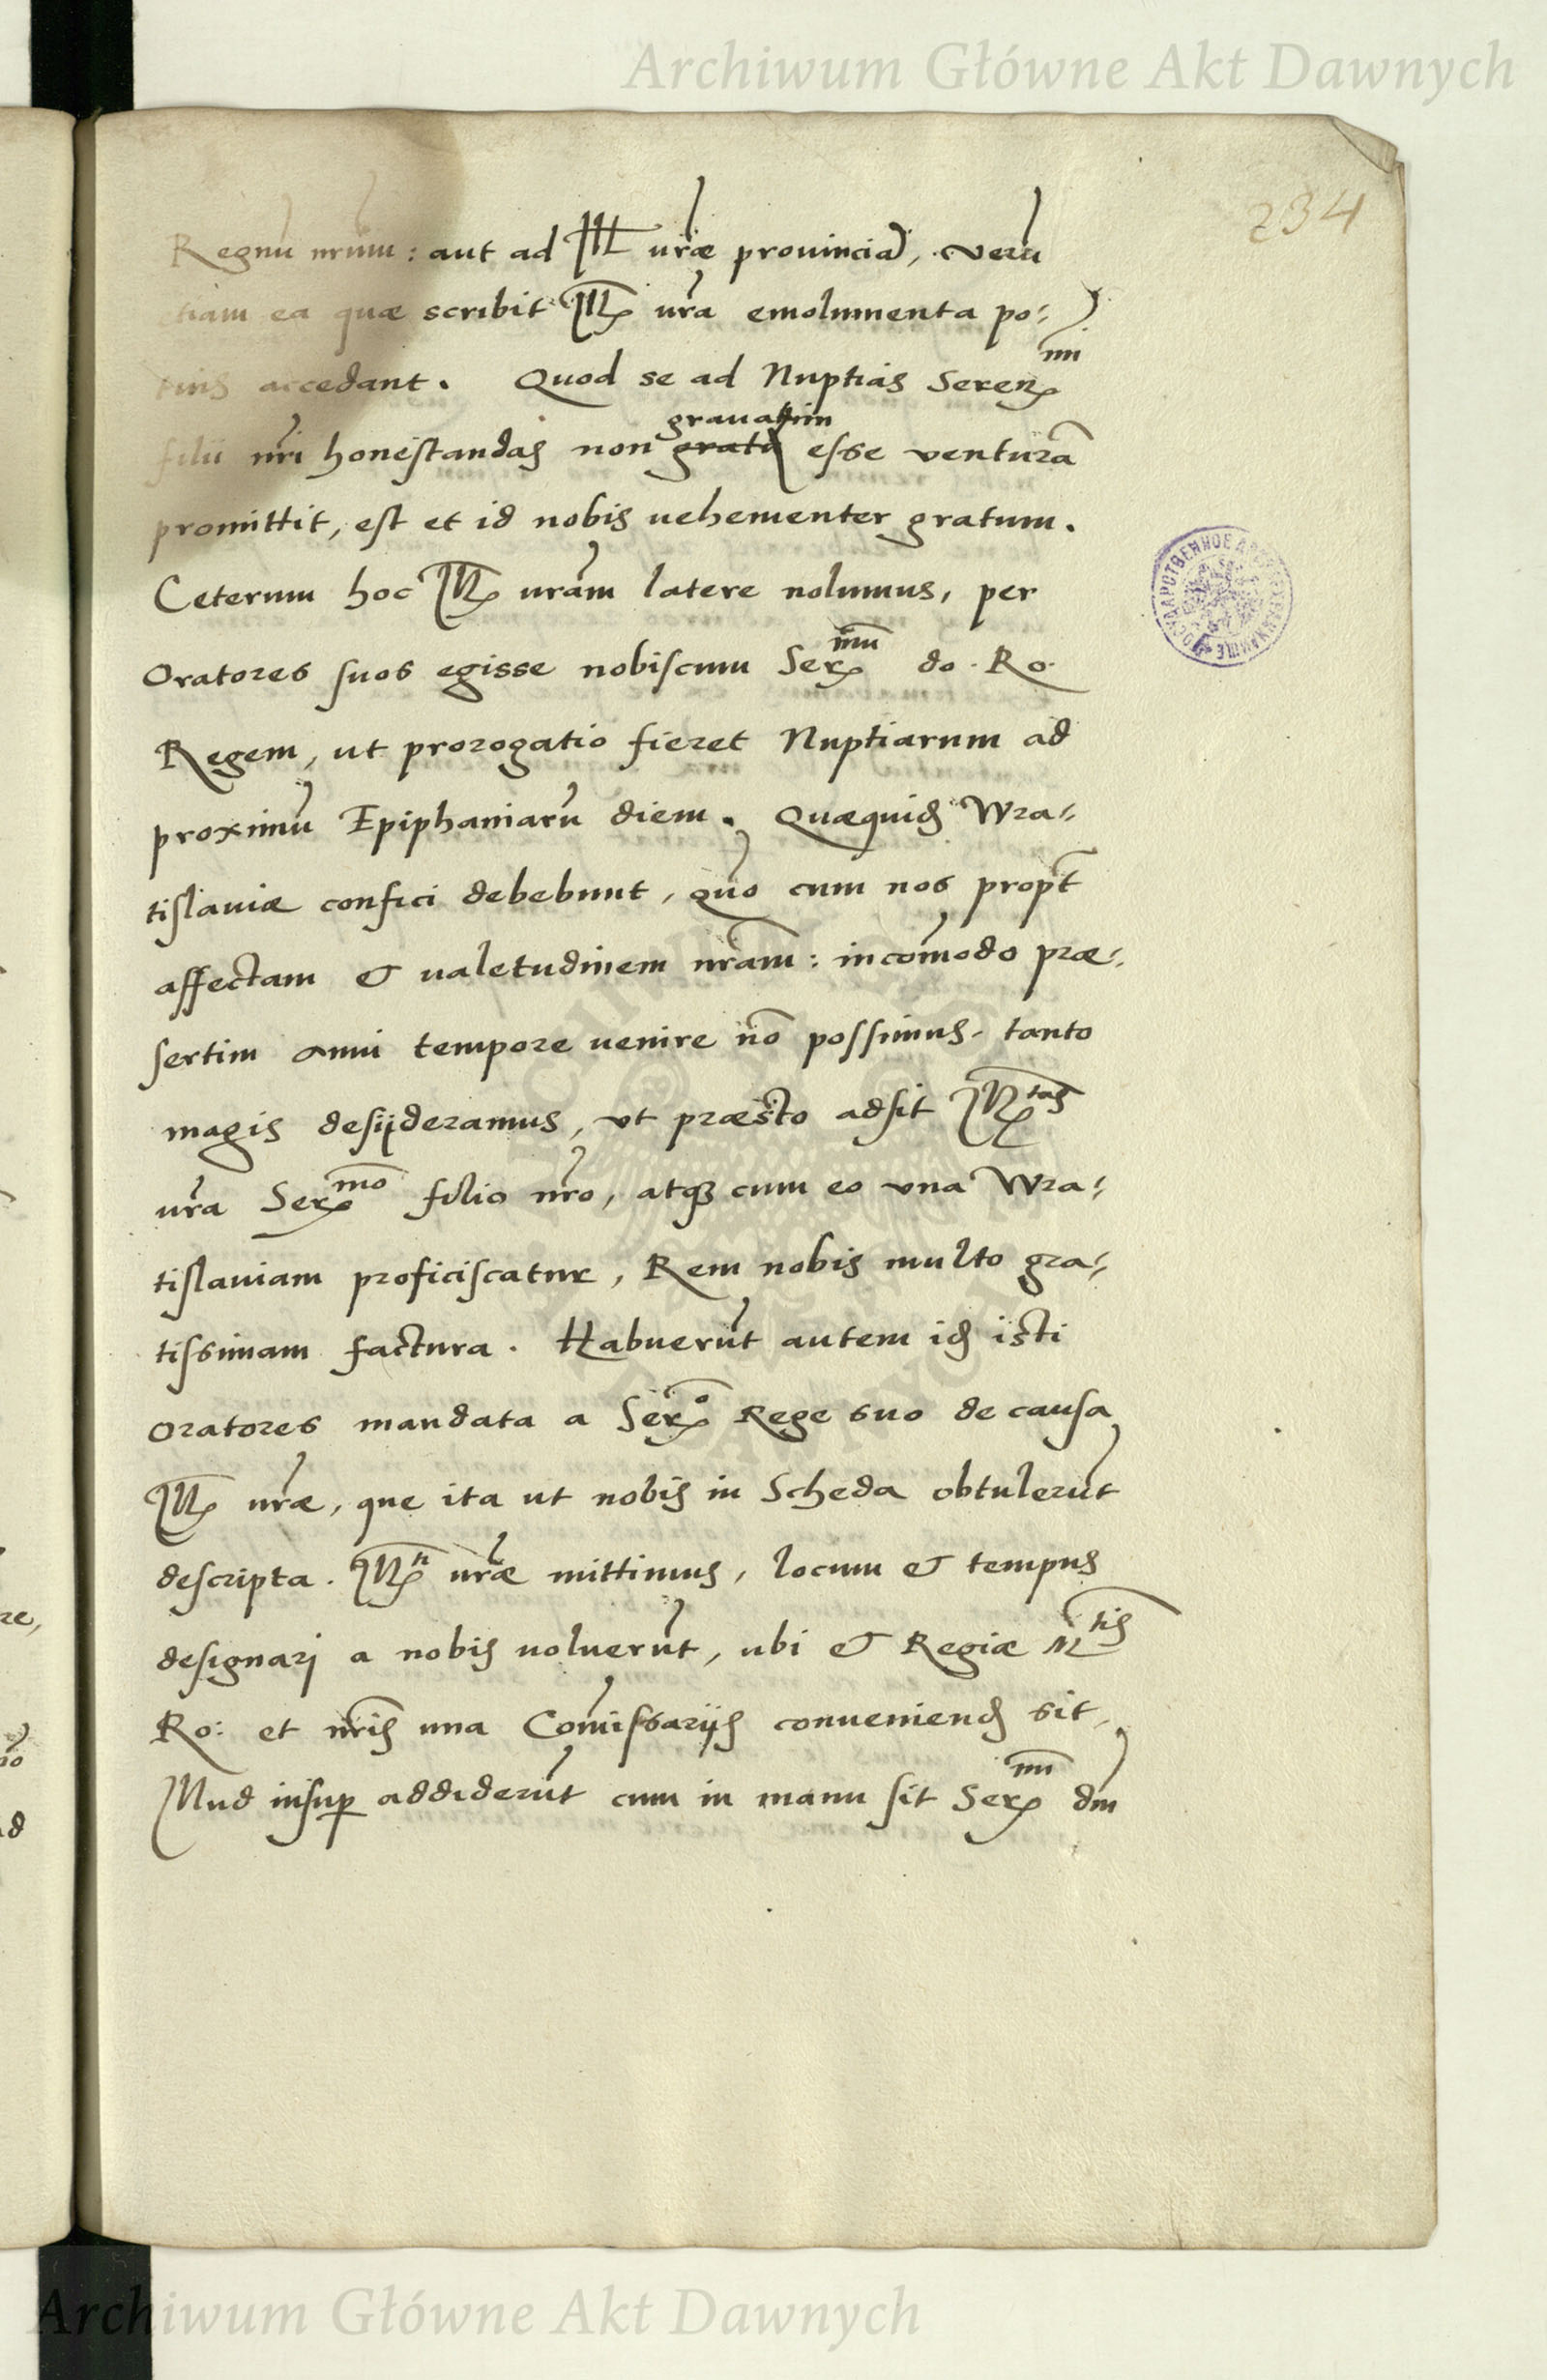 Archiwum Główne Akt Dawnych
234
Regnũ nrũm: aut ad Ill uræ prouinciã, verũ
etiam ea quæ scribit Ill ura emolumenta po:
tius accedant. Quod se ad Nuptias Seren mi
filii nri honestandas non gratũ grauatim esse venturã
promittit, est et id nobis uehementer gratum.
Ceterum hoc Ill uram latere nolumus, per
Oratores suos egisse nobiscum Ser mũ do. Ro.
Regem, ut prorogatio fieret Nuptiarum ad
proximũ Epiphaniarũ diem. Quæquid Wra-
tislauiæ confici debebunt, quo cum nos propt
affectam & ualetudinem nram: incõmodo præ-
sertim anni tempore uenire nõ possimus. tanto
magis desijderamus, vt præsto adsit Ill tas
ura Ser mo filio nro, atq3 cum eo vna Wra-
tislauiam proficiscatur, Rem nobis multo gra-
tissimam factura. Habuerũt autem id isti
Oratores mandata a Ser o Rege suo de causa
Ill uræ, que ita ut nobis in Scheda obtulerũt
descripta. Ill ti uræ mittimus, locum & tempus
designarj a nobis uoluerũt, ubi & Regiæ M tis
Ro: et nris una Comissarijs conueniend sit,
Illud insup addiderũt cum in manu sit Ser mi dni
Archiwum Główne Akt Dawnych